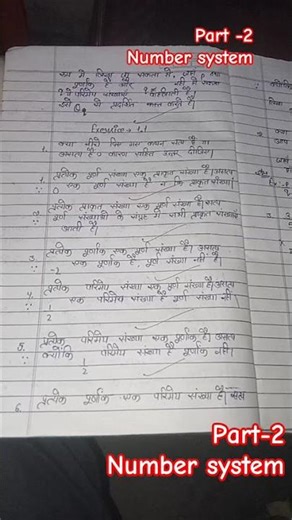 Part -2
Number system
रूप में लिखा जा सकता है, जहाँ
पूर्णांक है और
वे परिमेय संख्याएँ कहलाती है।
Q से प्रदर्शित करते है।
Exercise - 1.1
क्या नीचे दिए गए कथन सत्य है या
असत्य है? कारण सहित उत्तर दीजिए।
1. प्रत्येक पूर्ण संख्या एक प्राकृत संख्या है। असत्य
∵ 0 एक पूर्ण संख्या है न कि प्राकृत संख्या।
2. प्रत्येक प्राकृत संख्या एक पूर्ण संख्या है। सत्य
∵ पूर्ण संख्याओं के संग्रह में सभी प्राकृत संख्याएं
आती है।
3. प्रत्येक पूर्णांक एक पूर्ण संख्या है। असत्य
∵ -2 एक पूर्णांक है, पूर्ण संख्या नहीं है।
4. प्रत्येक परिमेय संख्या एक पूर्ण संख्या है। असत्य
∵ 1/2 एक परिमेय संख्या है पूर्ण संख्या नहीं।
5. प्रत्येक परिमेय संख्या एक पूर्णांक है। असत्य
∵ क्योंकि 1/2 परिमेय संख्या है पूर्णांक नहीं।
6. प्रत्येक पूर्णांक एक परिमेय संख्या है। सत्य
Part-2
Number system